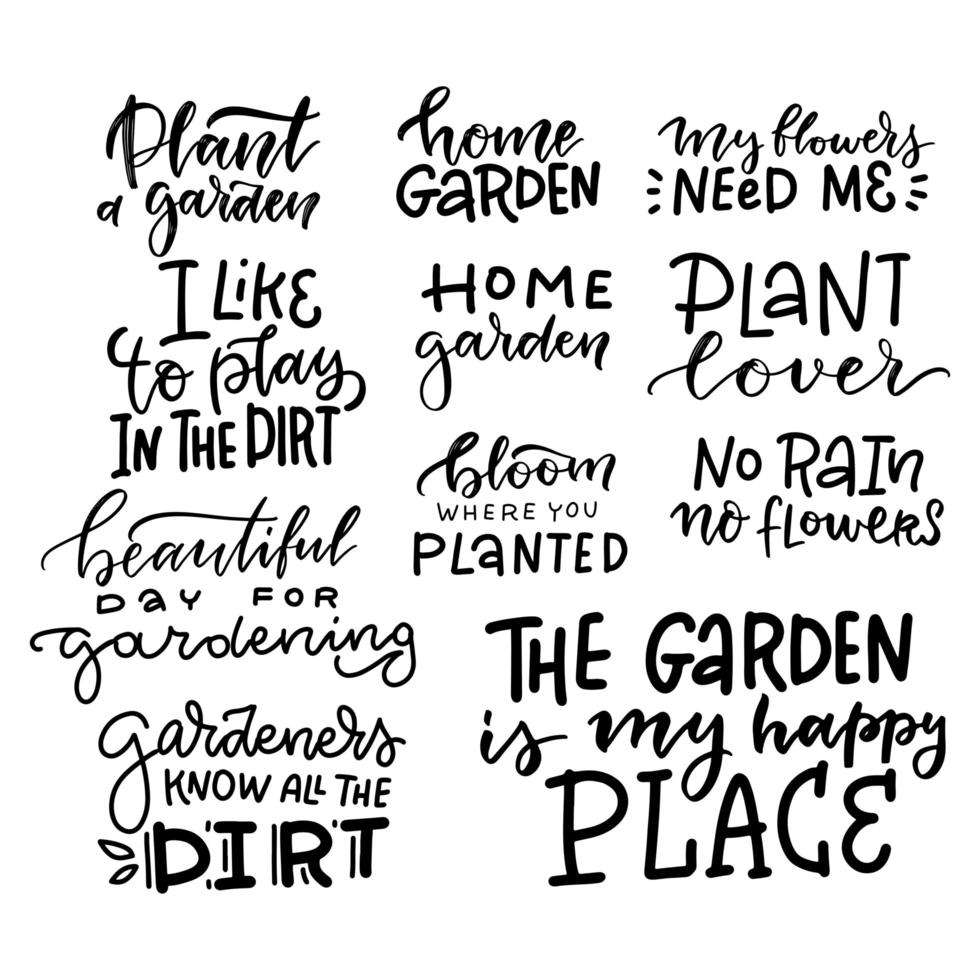 Plant
a garden
home
GaRDEN
my flowers
NEeD ME
I LiKE
to play
IN THE DIRT
HOME
garden
PLaNT
lover
bloom
WHERE YOU
PLANTED
No RaIn
no flowers
beautiful
DaY FOR
gardening
THE GaRDEN
is my happy
PLACE
gardeners
KNOW ALL THE
DIRT